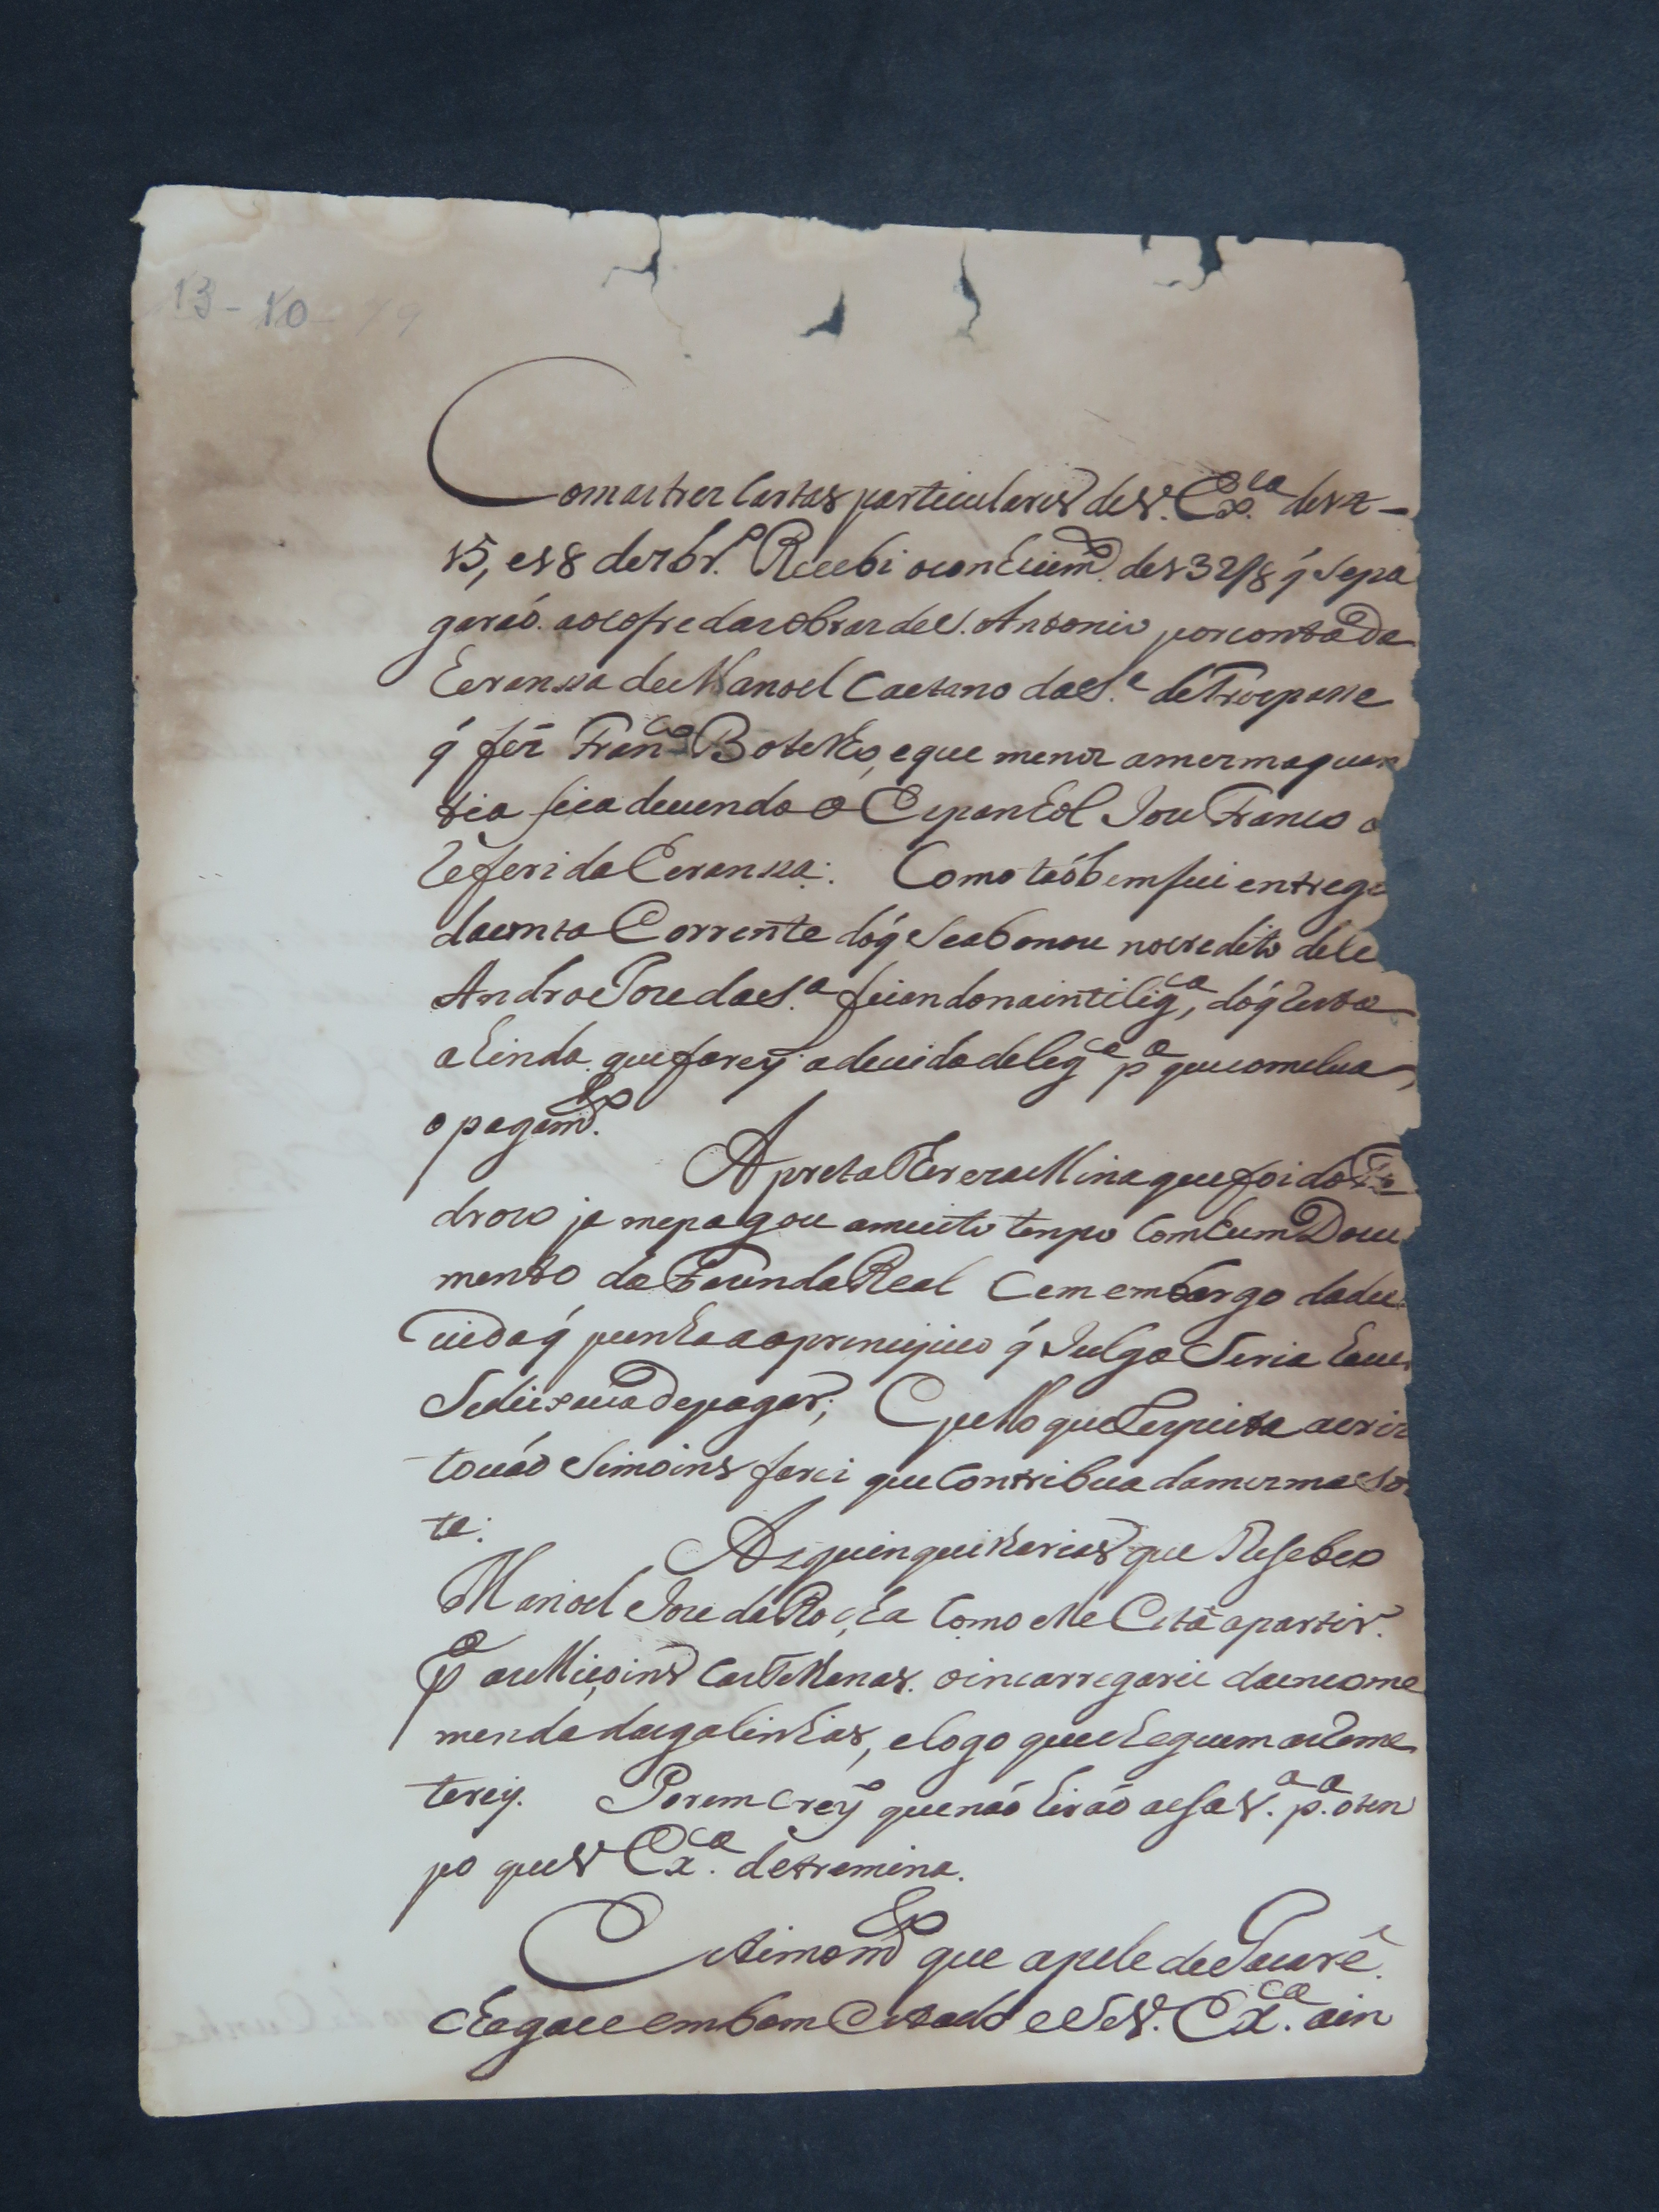 13-10-79
Com as tres Cartas particulares de V. Ex.ca de 12
15, e 18 de 7br.o Recebi o conhecim.to de 132/8 q́ se pa
garaó ao cofre das obras de S. Antonio por conta da
Eransa de Manoel Caetano da S.a de Trocpasse
q́ fés Fran.co Botelho, e que menos a mesma quan
tia fica devendo o Espanhol Joze Franco a
referida Eransa. Como taóbem fui entregue
da conta Corrente dóq́ se abonou no credito dele
Andre Joze da S.a ficando na intilig.ca, dóq́ resta
ahinda que farey a devida delig.ca p.a que comclua
o pagam.to
A preta Thereza Mina que foi do Pe
droso ja me pagou a muito tenpo com hum Docu
mento da Fazenda Real Cem embargo da du
vida q́ punha ao principio q́ Julgo Seria haver
Se lhe xaviá de pagar; E pello que respeita a cris
tovaó Simoins farei que contribua da mesma sor
te.
As quinquilharias que Resebeo
Manoel Joze da Rocha como elle Está a partir
p.a as Miçoins Castelhanas o incarregarei da encome
menda das galinhas, e logo que cheguem as reme
terey. Porem crey que naó hiraó a essa V.a p.a o ten
po que V Ex.ca detremina.
Estimo m.to que a pele de Jacaré
chegase em bom Estado e Se V. Ex.ca ain